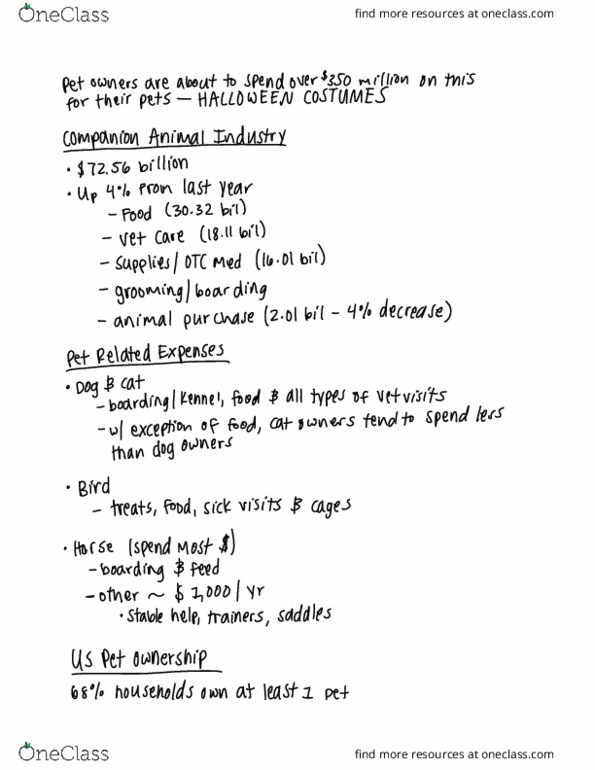 OneClass
find more resources at oneclass.com
Pet owners are about to spend over $350 million on this
for their pets — HALLOWEEN COSTUMES
Companion Animal Industry
• $72.56 billion
• Up 4% from last year
– Food (30.32 bil)
– Vet Care (18.11 bil)
– Supplies/OTC Med (16.01 bil)
– grooming/boarding
– animal purchase (2.01 bil – 4% decrease)
Pet Related Expenses
• Dog & cat
– boarding/kennel, food & all types of vet visits
– w/ exception of food, cat owners tend to spend less
than dog owners
• Bird
– treats, food, sick visits & cages
• Horse (spend most $)
– boarding & feed
– other ~ $1,000/yr
• stable help, trainers, saddles
US Pet ownership
68% households own at least 1 pet
OneClass
find more resources at oneclass.com